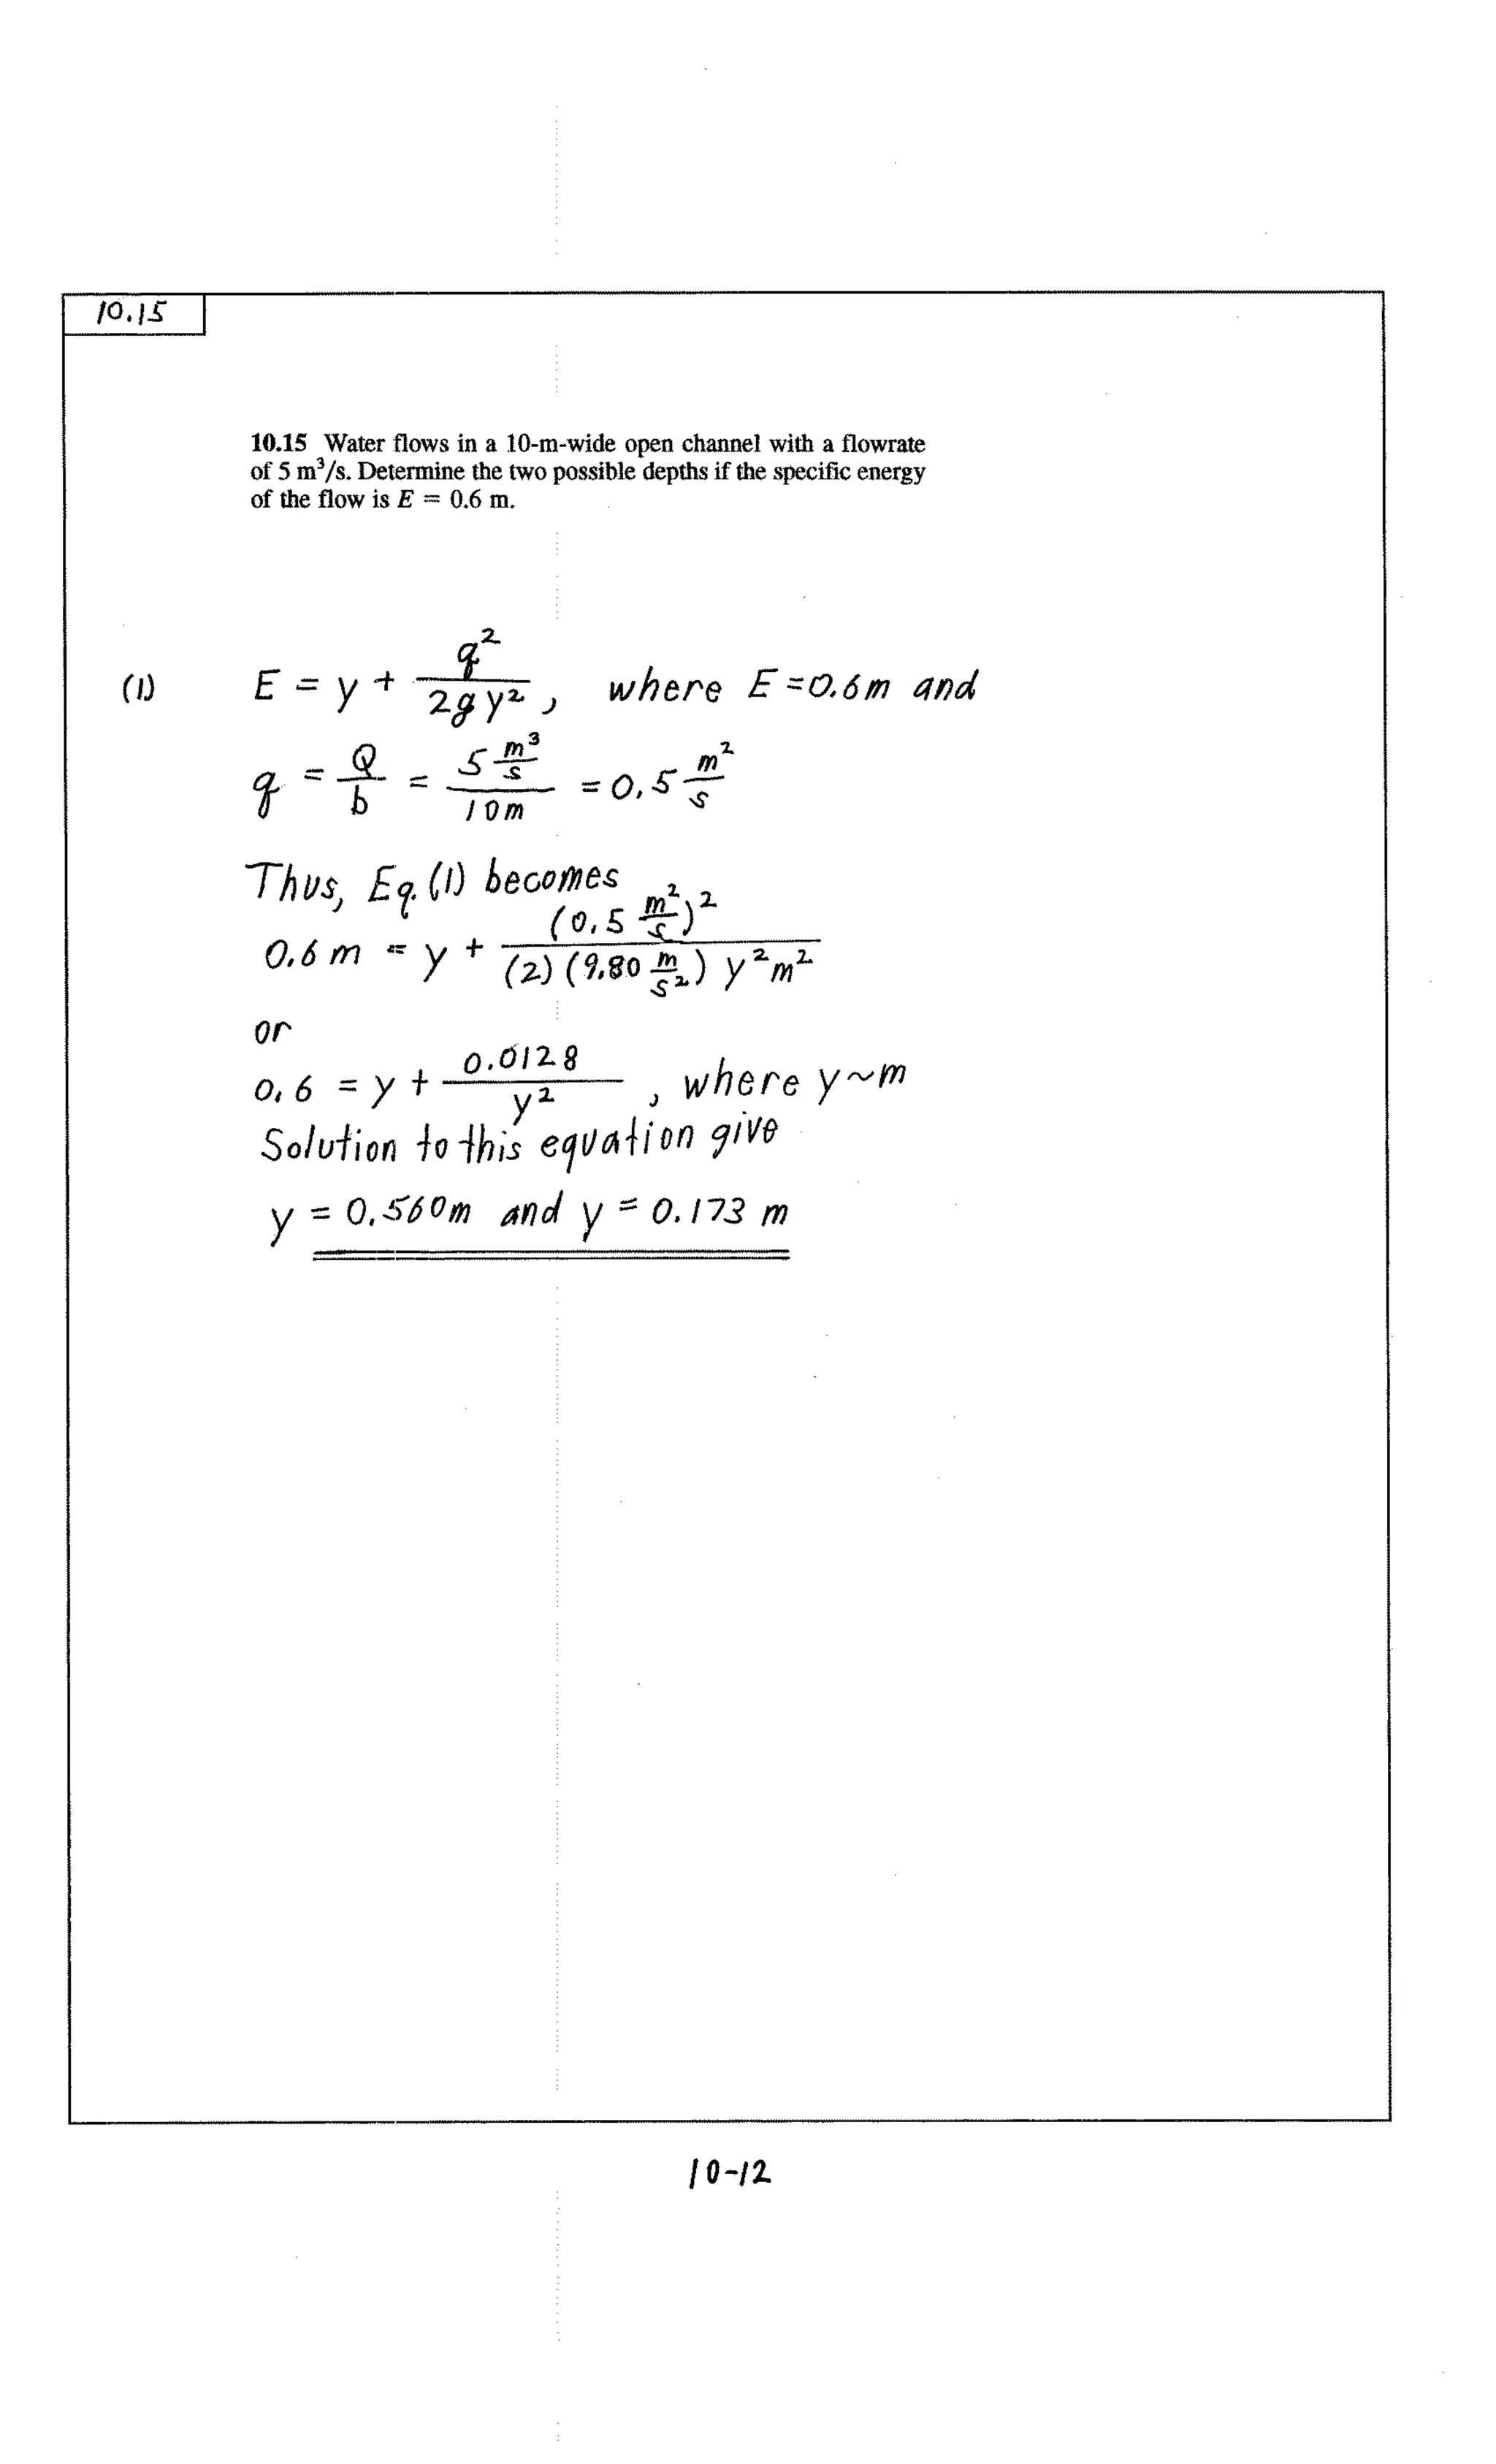 10.15
10.15 Water flows in a 10-m-wide open channel with a flowrate
of 5 m³/s. Determine the two possible depths if the specific energy
of the flow is E = 0.6 m.
(1) E = y + q² / 2gy², where E = 0.6m and
q = Q/b = 5 m³/s / 10m = 0.5 m²/s
Thus, Eq. (1) becomes
0.6 m = y + (0.5 m²/s)² / (2)(9.80 m/s²) y² m²
or
0.6 = y + 0.0128 / y², where y~m
Solution to this equation give
y = 0.560m and y = 0.173 m
10-12